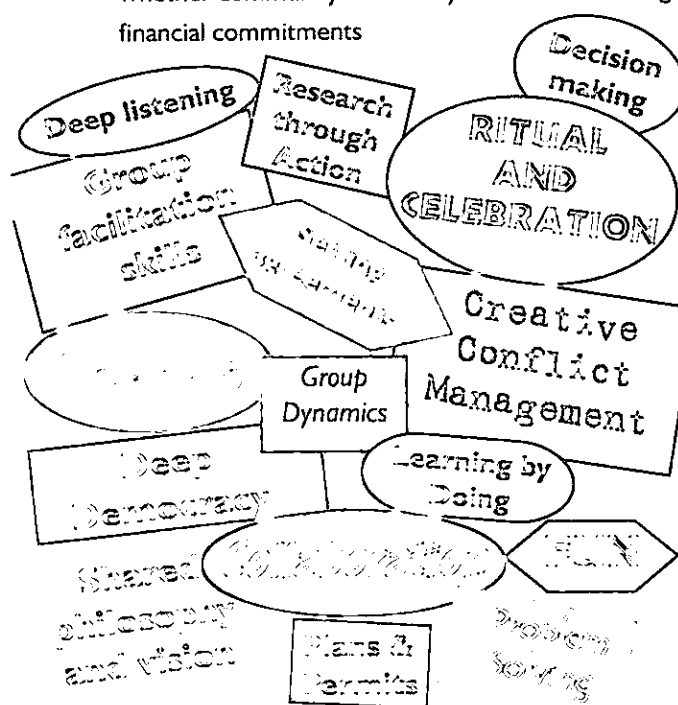 financial commitments
Decision
making
Deep listening
Research
through
Action
RITUAL
AND
CELEBRATION
Group
facilitation
skills
Creative
Conflict
Management
Group
Dynamics
Deep
Democracy
Learning by
Doing
FUN
Shared
philosophy
and vision
Plans &
Permits
Problem
Solving